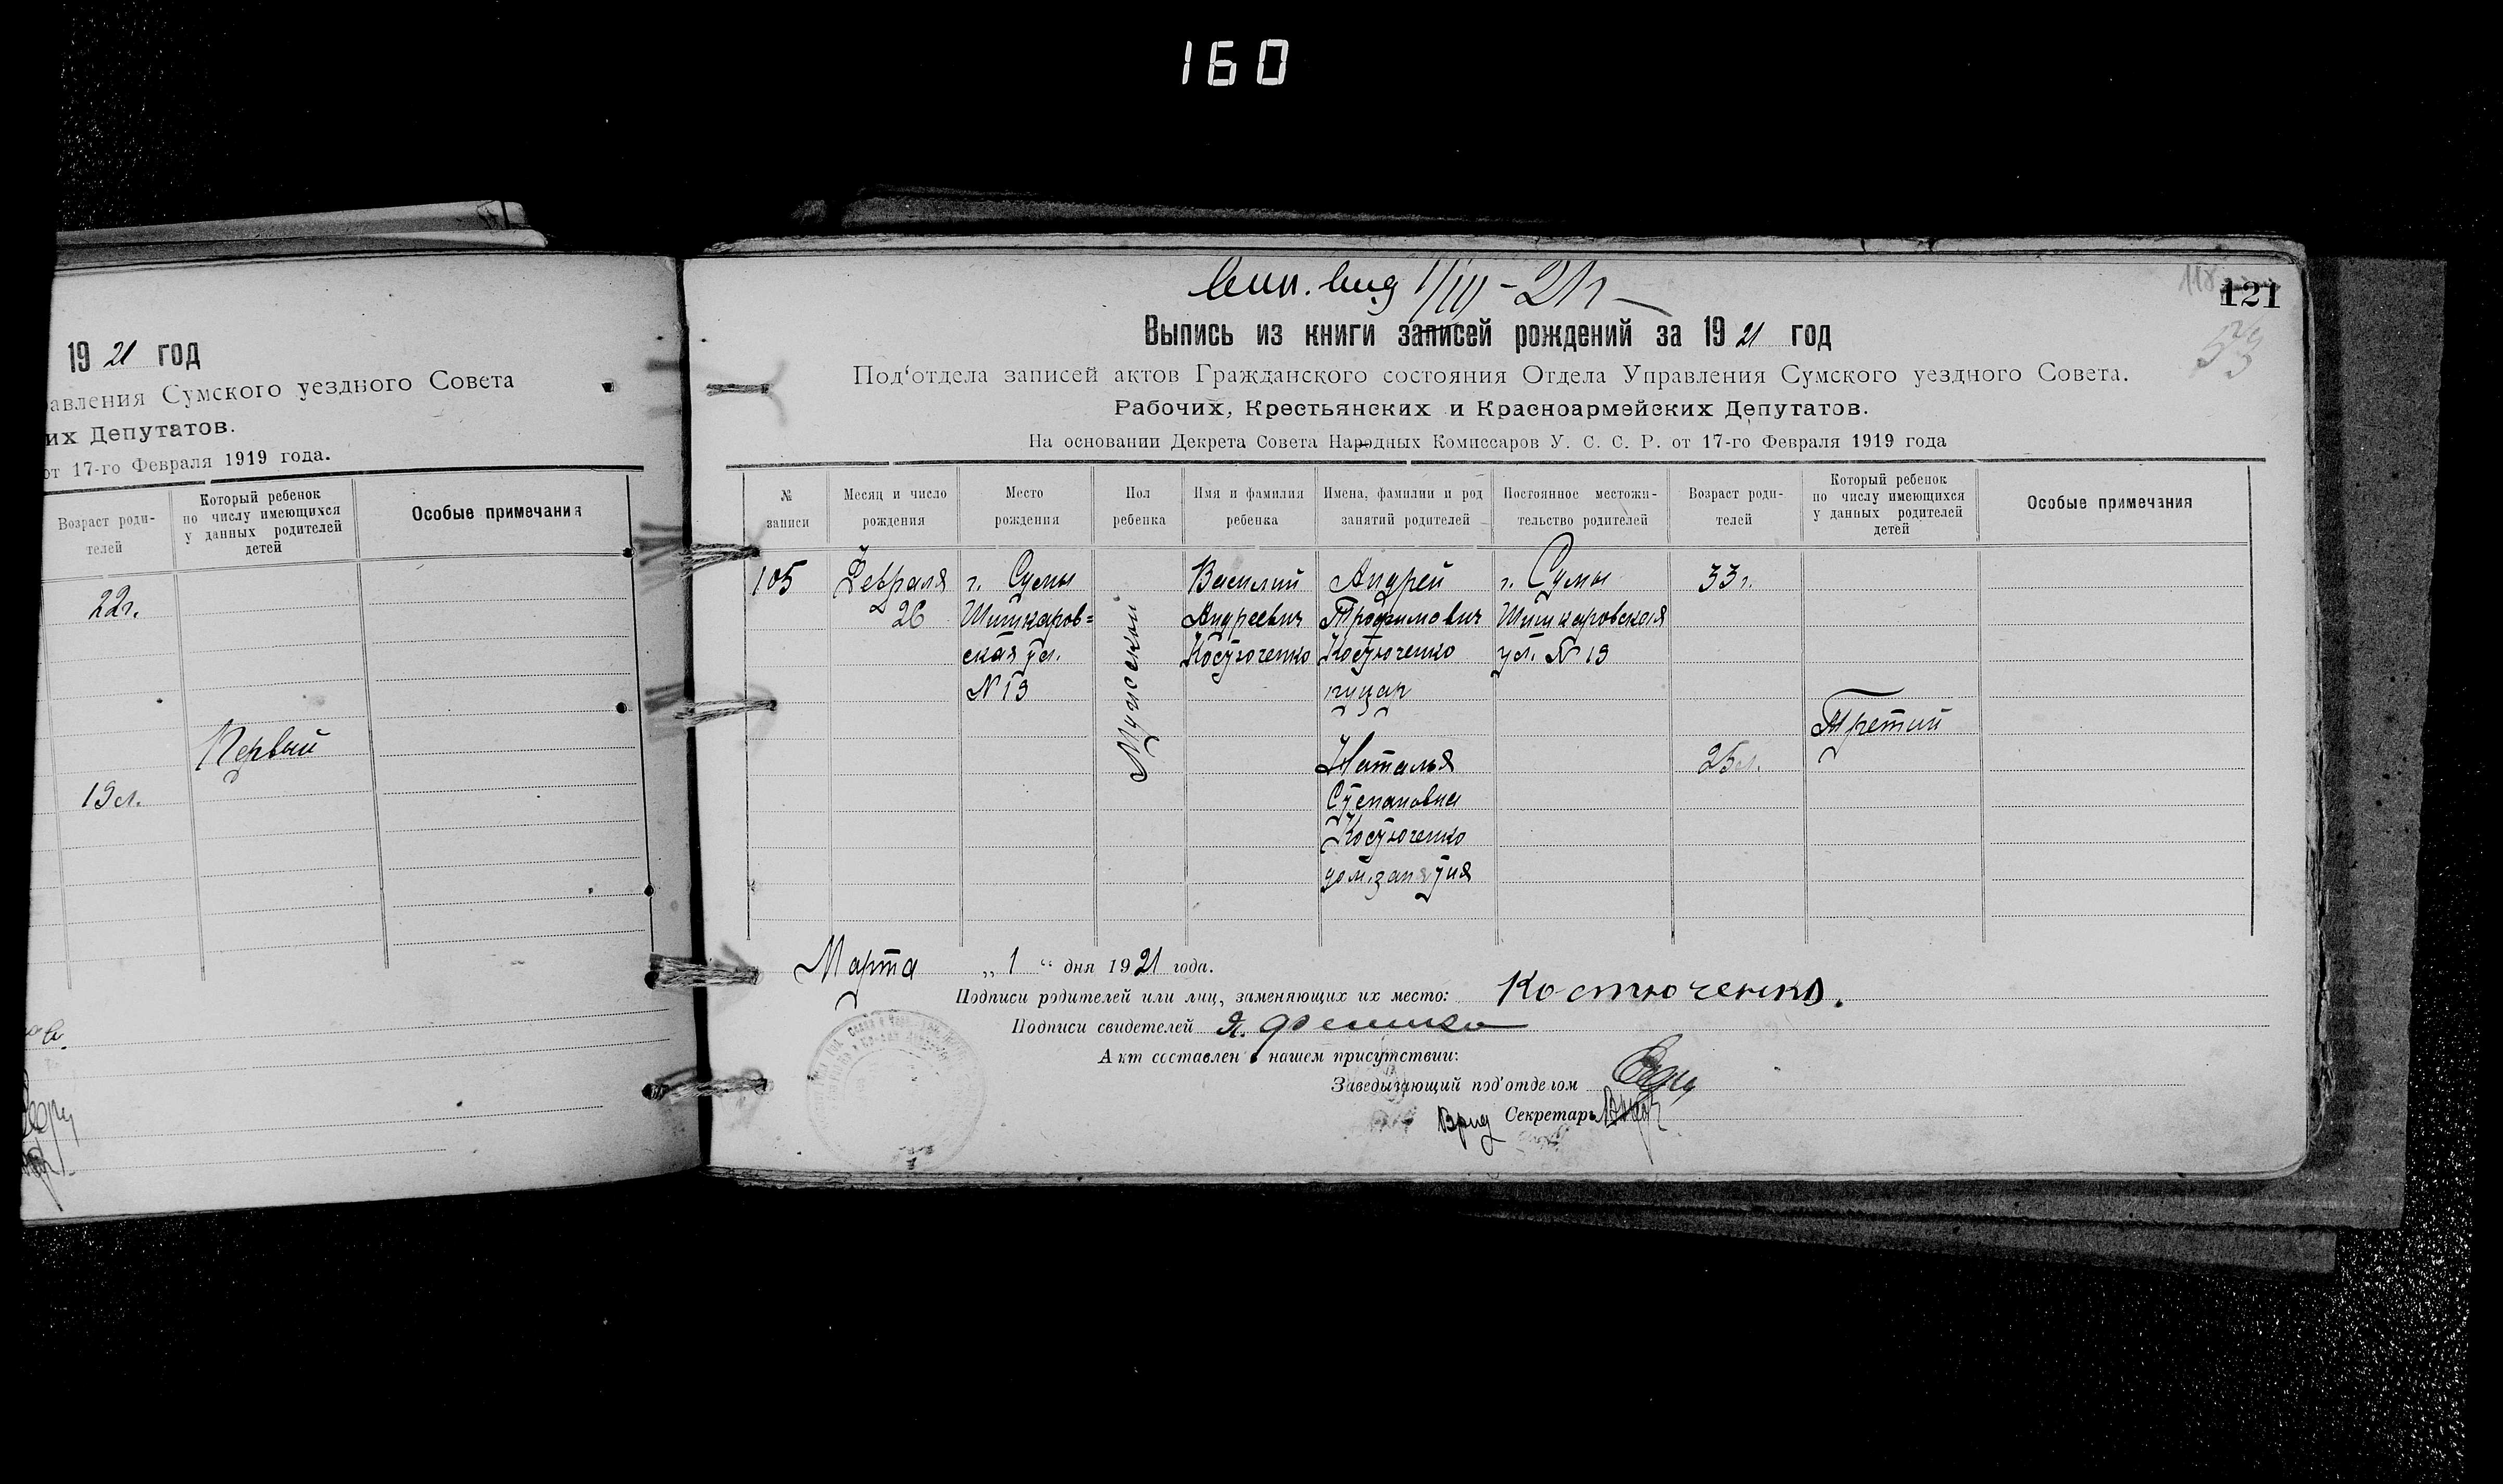 160
19 21 год
авления Сумского уездного Совета
их Депутатов.
от 17-го Февраля 1919 года.
Возраст роди-
телей
Который ребенок
по числу имеющихся
у данных родителей
детей
Особые примечания
22 г.
Первый
19 л.
1/III - 21 г.
118
121
Выпись из книги записей рождений за 19 21 год
Под‘отдела записей актов Гражданского состояния Отдела Управления Сумского уездного Совета.
Рабочих, Крестьянских и Красноармейских Депутатов.
На основании Декрета Совета Народных Комиссаров У. С. С. Р. от 17-го Февраля 1919 года
№
записи
Месяц и число
рождения
Место
рождения
Пол
ребенка
Имя и фамилия
ребенка
Имена, фамилии и род
занятий родителей
Постоянное местожи-
тельство родителей
Возраст роди-
телей
Который ребенок
по числу имеющихся
у данных родителей
детей
Особые примечания
105
Февраля
26
г. Сумы
Шишкаров=
ская ул.
N 19
Мужской
Василий
Андреевич
Костюченко
Андрей
Трофимович
Костюченко
Наталья
Степановна
Костюченко
дом. занятия
г. Сумы
Шишкаровская
ул. N 19
33 г.
25 л.
Третий
Марта „ 1 “ дня 19 21 года.
Подписи родителей или лиц, заменяющих их место: Костюченко.
Подписи свидетелей
Акт составлен в нашем присутствии:
Заведывающий под‘отделом
Врид Секретарь